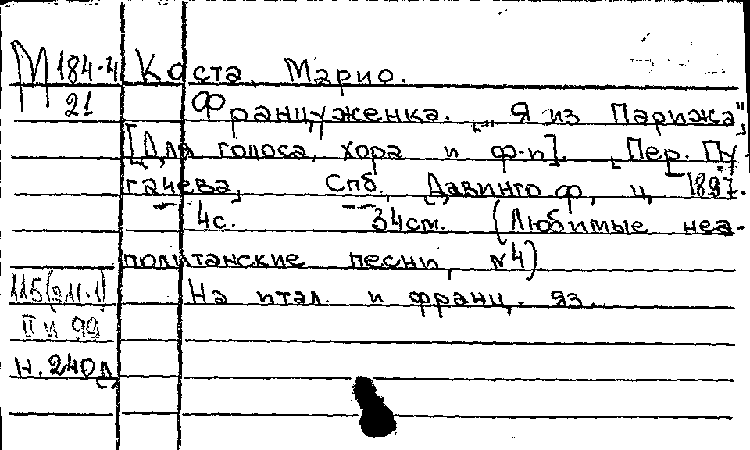 М 184-4 Коста, Марио.
21 Француженка. „Я из Парижа",
[Для голоса, хора и ф-п]. Пер. Пу
гачева, Спб, Давингоф, ц, 1897.
4с. 34см. (Любимые неа-
политанские песни, №4)
На итал. и франц. яз.
115(211.1)
II и 99
н. 240д